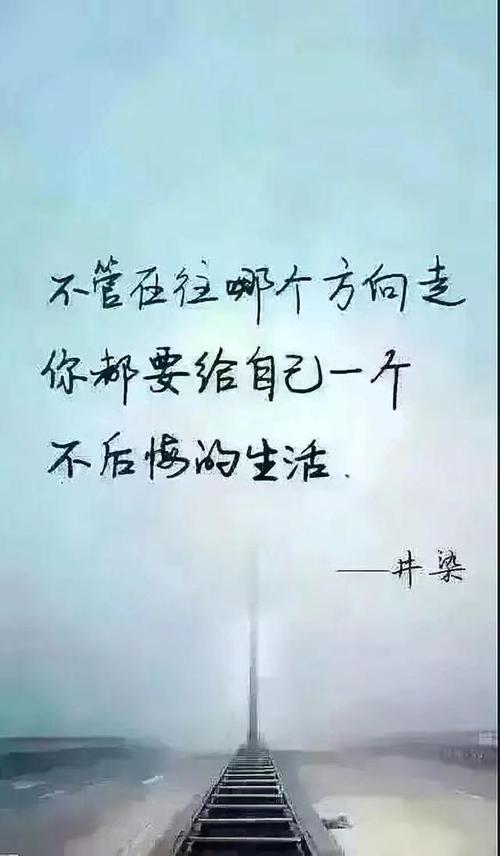 不管在往哪个方向走
你都要给自己一个
不后悔的生活.
——井染